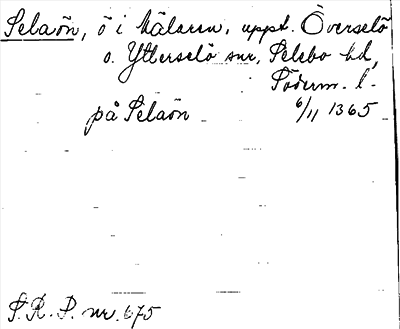 Selaön, ö i Mälaren, uppt. Överselö
o. Ytterselö snr, Selebo hd,
Söderm. l.
på Selaön 6/11 1365
S.R.P. nr. 675